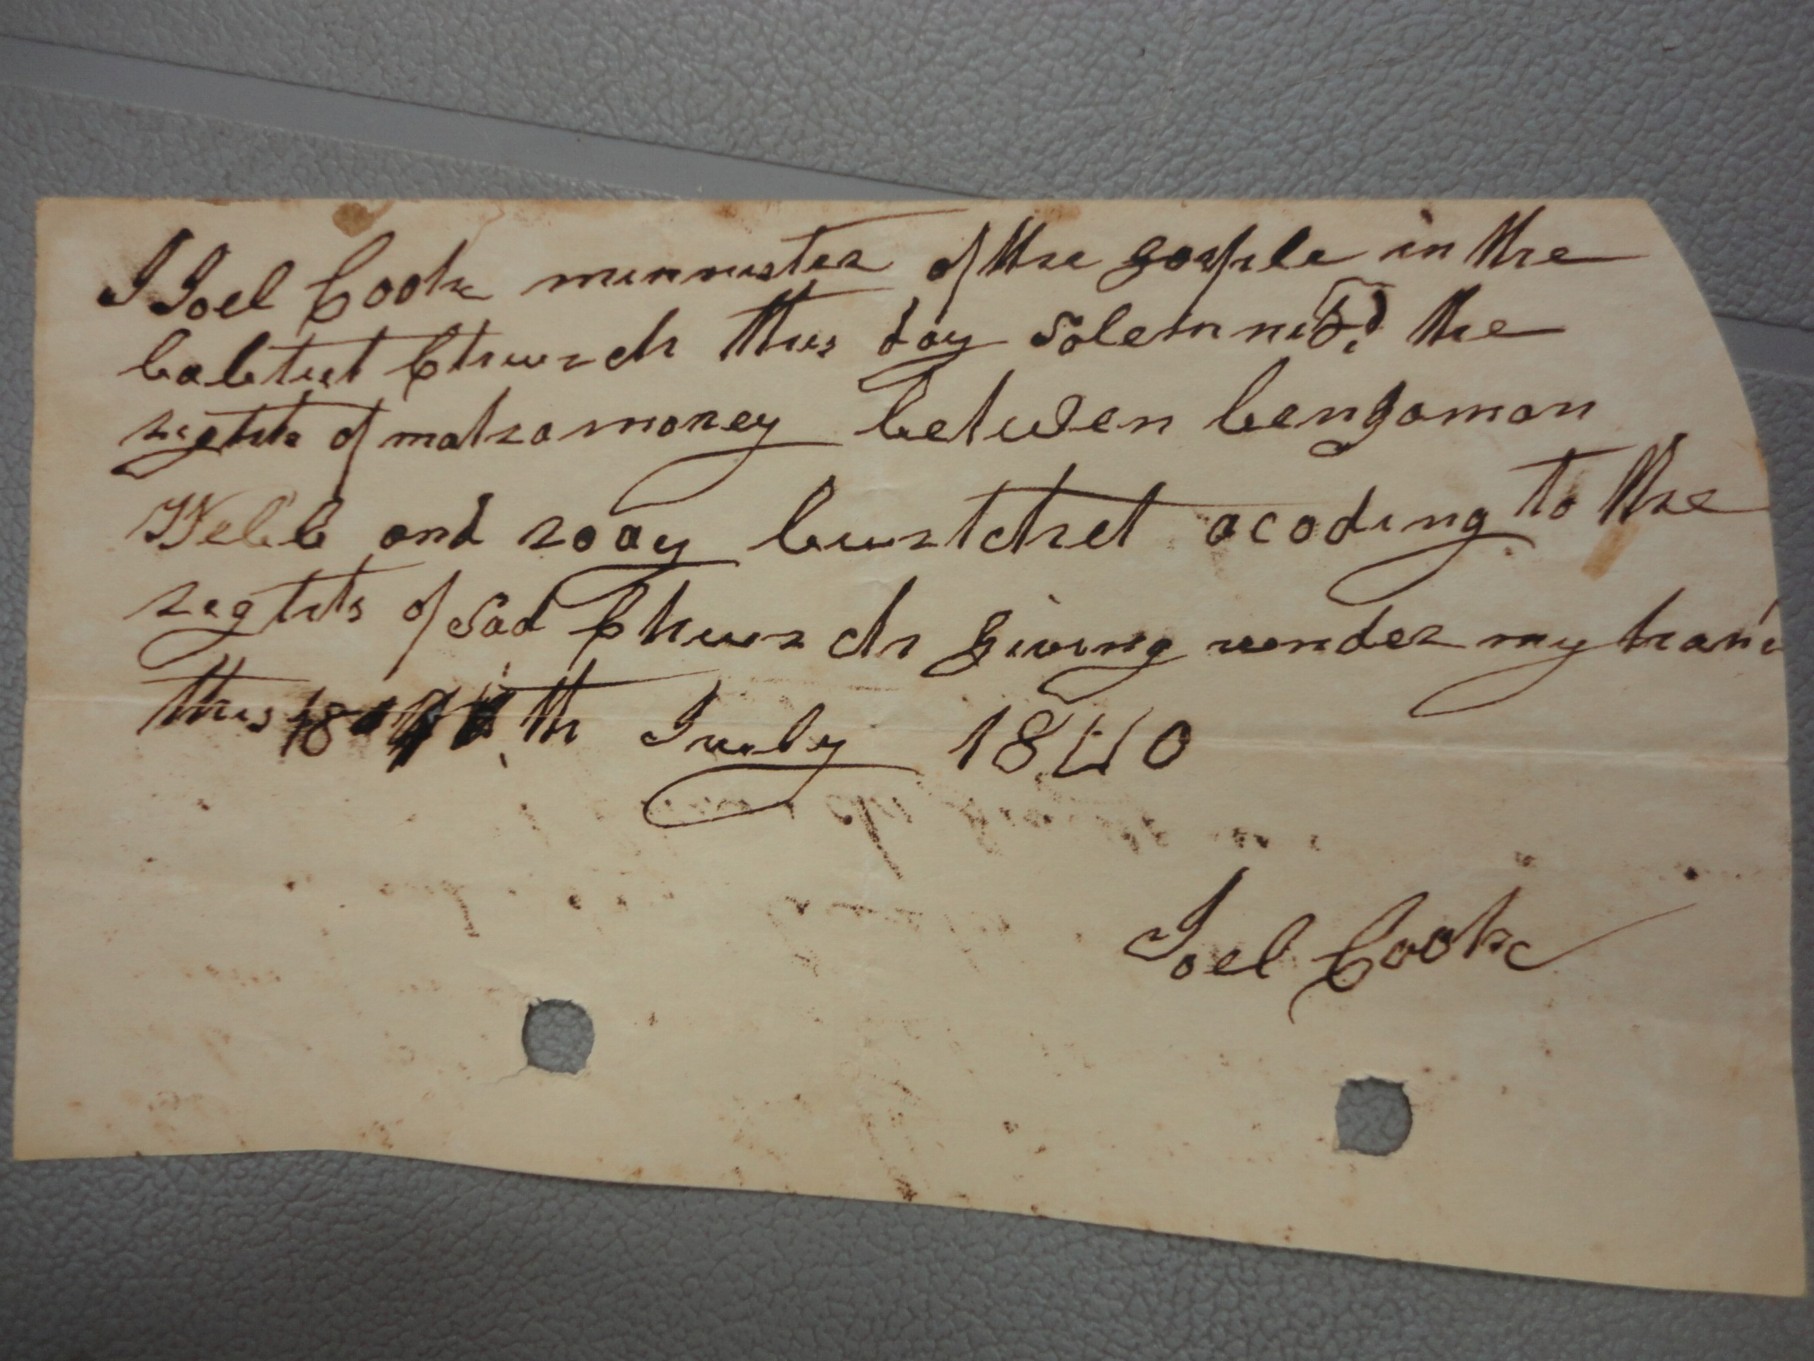 I Joel Cooke minnister of the gospile in the
babtist Church this day solemnizd the
rights of matramoney betwen bengaman
Webb and roay burtchet acoding to the
reghts of sad Church giving under my hand
this 18 th July 1840
Joel Cooke